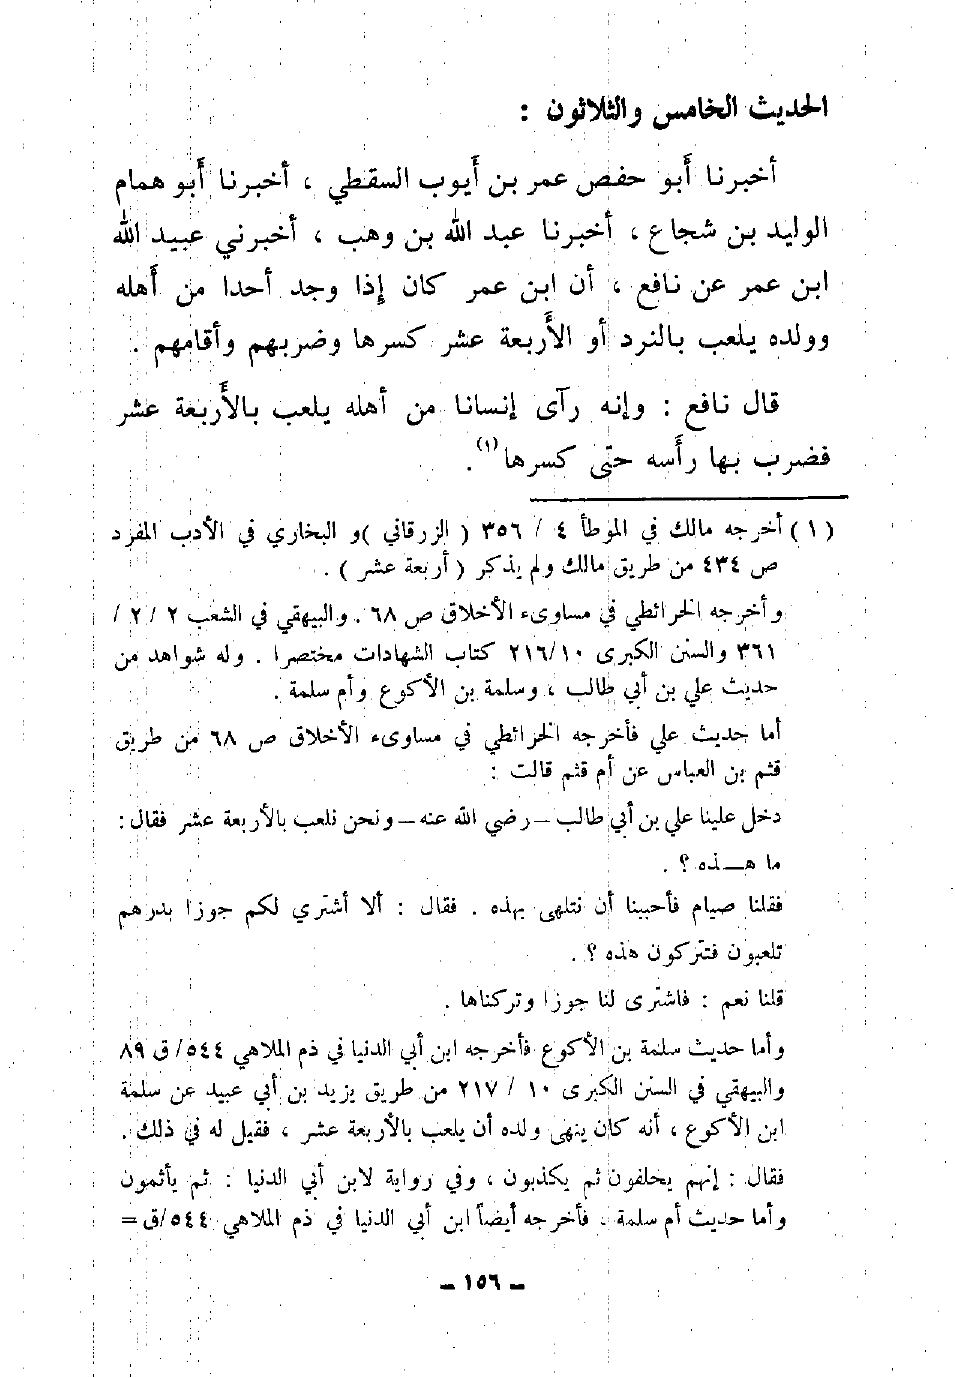 الحديث الخامس والثلاثون :
أخبرنا أبو حفص عمر بن أيوب السقطي ، أخبرنا أبو همام
الوليد بن شجاع ، أخبرنا عبد الله بن وهب ، أخبرني عبيد الله
ابن عمر عن نافع ، أن ابن عمر كان إذا وجد أحدا من أهله
وولده يلعب بالنرد أو الأربعة عشر كسرها وضربهم وأقامهم .
قال نافع : وإنه رآى إنسانا من أهله يلعب بالأربعة عشر
فضرب بها رأسه حتى كسرها(١) .
( ١ ) أخرجه مالك في الموطأ ٤ / ٣٥٦ ( الزرقاني )و البخاري في الأدب المفرد
ص ٤٣٤ من طريق مالك ولم يذكر ( أربعة عشر ) .
وأخرجه الخرائطي في مساوىء الأخلاق ص ٦٨ . والبيهقي في الشعب ٢ / ٢ /
٣٦١ والسنن الكبرى ٢١٦/١٠ كتاب الشهادات مختصرا . وله شواهد من
حديث علي بن أبي طالب ، وسلمة بن الأكوع وأم سلمة .
أما حديث علي فأخرجه الخرائطي في مساوىء الأخلاق ص ٦٨ من طريق
قثم بن العباس عن أم قثم قالت :
دخل علينا علي بن أبي طالب – رضي الله عنه – ونحن نلعب بالأربعة عشر فقال :
ما هـــذه ؟ .
فقلنا صيام فأحببنا أن نتلهى بهذه . فقال : ألا أشتري لكم جوزا بدرهم
تلعبون فتتركون هذه ؟ .
قلنا نعم : فاشترى لنا جوزا وتركناها .
وأما حديث سلمة بن الأكوع فأخرجه ابن أبي الدنيا في ذم الملاهي ٥٤٤/ ق ٨٩
والبيهقي في السنن الكبرى ١٠ / ٢١٧ من طريق يزيد بن أبي عبيد عن سلمة
ابن الأكوع ، أنه كان ينهى ولده أن يلعب بالأربعة عشر ، فقيل له في ذلك .
فقال : إنهم يحلفون ثم يكذبون ، وفي رواية لابن أبي الدنيا : ثم يأثمون
وأما حديث أم سلمة . فأخرجه أيضاً ابن أبي الدنيا في ذم الملاهي ٥٤٤/ق =
– ١٥٦ –